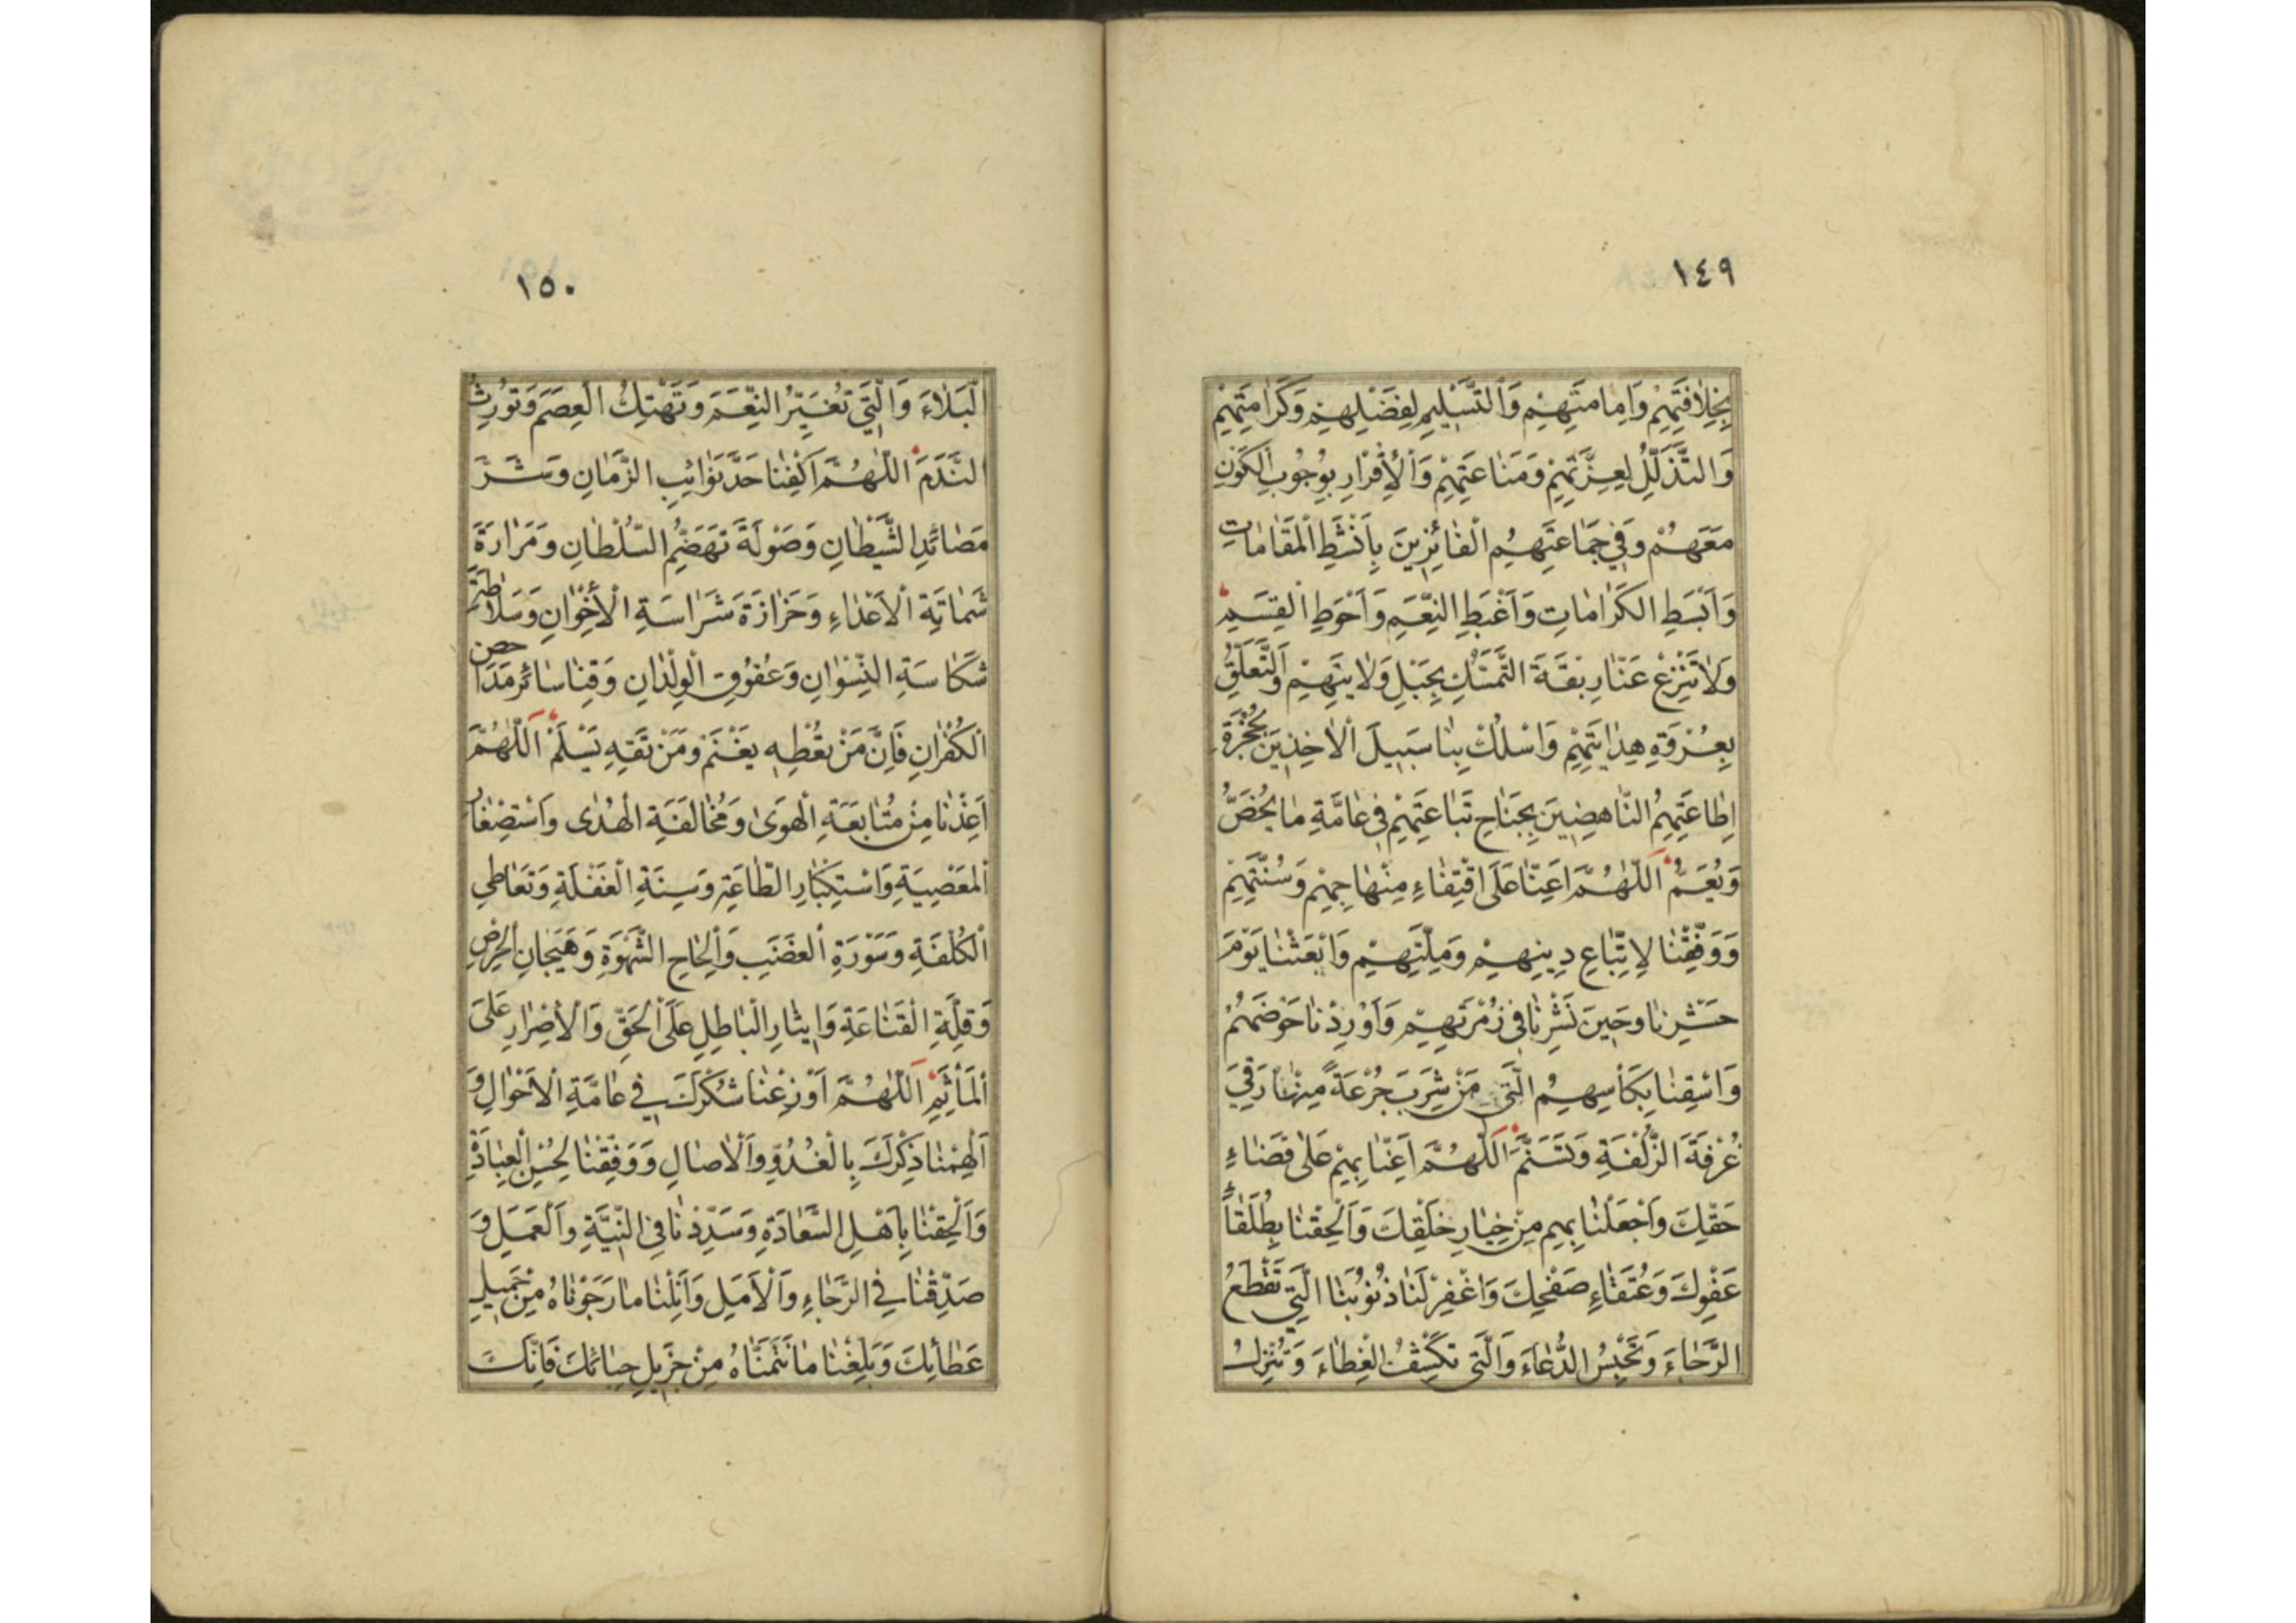 ١٤٩
بِخِلَافَتِهِمْ وَاِمامَتِهِمْ وَالتَّسْلِيمِ لِفَضْلِهِمْ وَكَرَامَتِهِمْ
وَالتَّذَلُّلِ لِعِزَّتِهِمْ وَمَنَاعَتِهِمْ وَالْاِقْرَارِ بِوُجُوبِ الكَوْنِ
مَعَهُمْ وَفِي جَمَاعَتِهِمُ الْفَائِزِينَ بِاَنْشَطِ الْمَقَامَاتِ
وَاَبْسَطِ الكَرَامَاتِ وَاَغْبَطِ النِّعَمِ وَاَحْوَطِ الْقِسَمِ
وَلَا تَنْزِعْ عَنَّا رِبْقَةَ التَّمَسُّكِ بِحَبْلِ وَلَايَتِهِمْ وَالتَّعَلُّقِ
بِعُرْوَةِ هِدَايَتِهِمْ وَاسْلُكْ بِنَا سَبِيلَ الْاٰخِذِينَ بِحُجْزَةِ
اِطَاعَتِهِمُ النَّاهِضِينَ بِجَنَاحِ تَبَاعَتِهِمْ فِي عَامَّةِ مَا يُخَصُّ
وَيُعَمُّ اَللّٰهُمَّ اَعِنَّا عَلَى اقْتِفَاءِ مِنْهَاجِهِمْ وَسُنَّتِهِمْ
وَوَفِّقْنَا لِاِتِّبَاعِ دِينِهِمْ وَمِلَّتِهِمْ وَابْعَثْنَا يَوْمَ
حَشْرِنَا وَحِينَ نَشْرِنَا فِي زُمْرَتِهِمْ وَاَوْرِدْنَا حَوْضَهُمْ
وَاسْقِنَا بِكَأْسِهِمُ الَّتِي مَنْ شَرِبَ جُرْعَةً مِنْهَا رَقِيَ
غُرْفَةَ الزُّلْفَةِ وَتَسَنَّمَ اَللّٰهُمَّ اَعِنَّا بِهِمْ عَلٰى قَضَاءِ
حَقِّكَ وَاجْعَلْنَا بِهِمْ مِنْ خِيَارِ خَلْقِكَ وَاَلْحِقْنَا بِطُلَقَاءِ
عَفْوِكَ وَعُتَقَاءِ صَفْحِكَ وَاغْفِرْ لَنَا ذُنُوبَنَا الَّتِي تَقْطَعُ
الرَّجَاءَ وَتَحْبِسُ الدُّعَاءَ وَالَّتِي تَكْشِفُ الْغِطَاءَ وَتُنْزِلُ
١٥٠
الْبَلَاءَ وَالَّتِي تُغَيِّرُ النِّعَمَ وَتَهْتِكُ الْعِصَمَ وَتُورِثُ
النَّدَمَ اَللّٰهُمَّ اَكْفِنَا حَدَّ نَوَائِبِ الزَّمَانِ وَشَرَّ
مَصَائِدِ الشَّيْطَانِ وَصَوْلَةَ تَهَضُّمِ السُّلْطَانِ وَمَرَارَةَ
شَمَاتَةِ الْاَعْدَاءِ وَحَزَازَةَ شَرَاسَةِ الْاَخْوَانِ وَسَلَاطَةِ
شَكَاسَةِ النِّسْوَانِ وَعُقُوقِ الْوِلْدَانِ وَقِنَا سَائِرَ مَدَاحِصِ
الْكُفْرَانِ فَاِنَّ مَنْ تُعْطِهِ يَغْنَمْ وَمَنْ تَقِهِ يَسْلَمْ اَللّٰهُمَّ
اَعِذْنَا مِنْ مُتَابَعَةِ الْهَوَىٰ وَمُخَالَفَةِ الْهُدٰى وَاسْتِصْغَارِ
الْمَعْصِيَةِ وَاسْتِكْبَارِ الطَّاعَةِ وَسِنَةِ الْغَفْلَةِ وَتَعَاطِي
الْكُلْفَةِ وَسَوْرَةِ الْغَضَبِ وَاِلْحَاحِ الشَّهْوَةِ وَهَيَجَانِ الْحِرْصِ
وَقِلَّةِ الْقَنَاعَةِ وَاِيثَارِ الْبَاطِلِ عَلَى الْحَقِّ وَالْاِصْرَارِ عَلَى
الْمَأْثَمِ اَللّٰهُمَّ اَوْزِعْنَا شُكْرَكَ فِي عَامَّةِ الْاَحْوَالِ وَ
اَلْهِمْنَا ذِكْرَكَ بِالْغُدُوِّ وَالْاٰصَالِ وَوَفِّقْنَا لِحُسْنِ الْعِبَادَةِ
وَاَلْحِقْنَا بِاَهْلِ السَّعَادَةِ وَسَدِّدْنَا فِي النِّيَّةِ وَالْعَمَلِ وَ
صَدِّقْنَا فِي الرَّجَاءِ وَالْاَمَلِ وَاَنِلْنَا مَا رَجَوْنَاهُ مِنْ جَمِيلِ
عَطَائِكَ وَبَلِّغْنَا مَا نَتَمَنَّاهُ مِنْ جَزِيلِ حِبَائِكَ فَاِنَّكَ